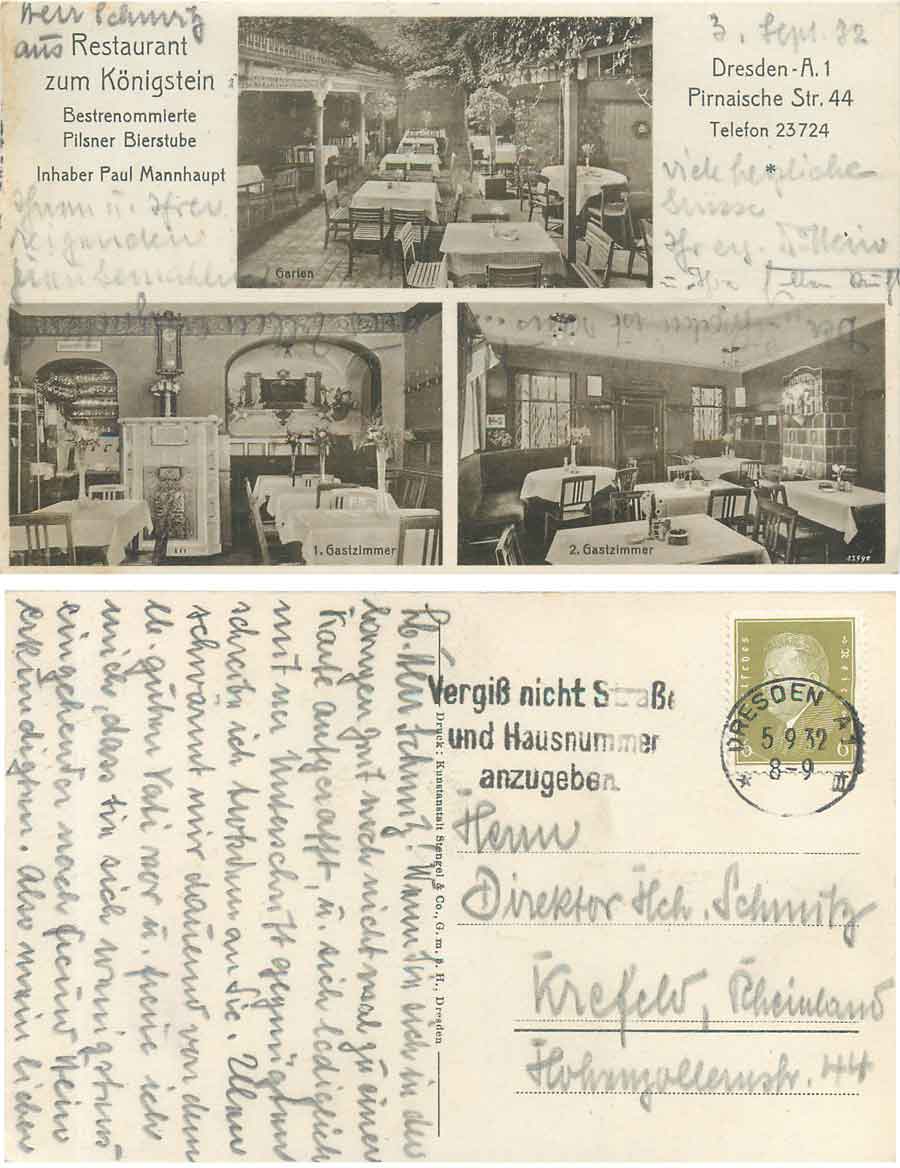 Herr Schmitz
aus
Restaurant
zum Königstein
Bestrenommierte
Pilsner Bierstube
Inhaber Paul Mannhaupt
Ihnen u. Ihrer
Garten
3. Sept. 32
Dresden-A. 1
Pirnaische Str. 44
Telefon 23724
*
viele herzliche
Grüsse
Ihrer
u. Ihre
1. Gastzimmer
2. Gastzimmer
Lb. Herr Schmitz! Wenn Sie sich in der
langen Zeit noch nicht mal zu einer
Karte aufgerafft, u. sich lediglich
mit ner Unterschrift begnügten
schreib ich trotzdem an Sie.
schwärmt mir dauernd von dem
lb. guten Vati vor u. freue ich
mich, dass Sie sich wenigstens
eingehender nach
erkundigten. Also mein lieber
Druck: Kunstanstalt Stengel & Co., G. m. b. H., Dresden
Vergiß nicht Straße
und Hausnummer
anzugeben.
DRESDEN A1
5 9 32
8-9
Herrn
Direktor Hch. Schmitz
Krefeld, Rheinland
Hohenzollernstr. 44